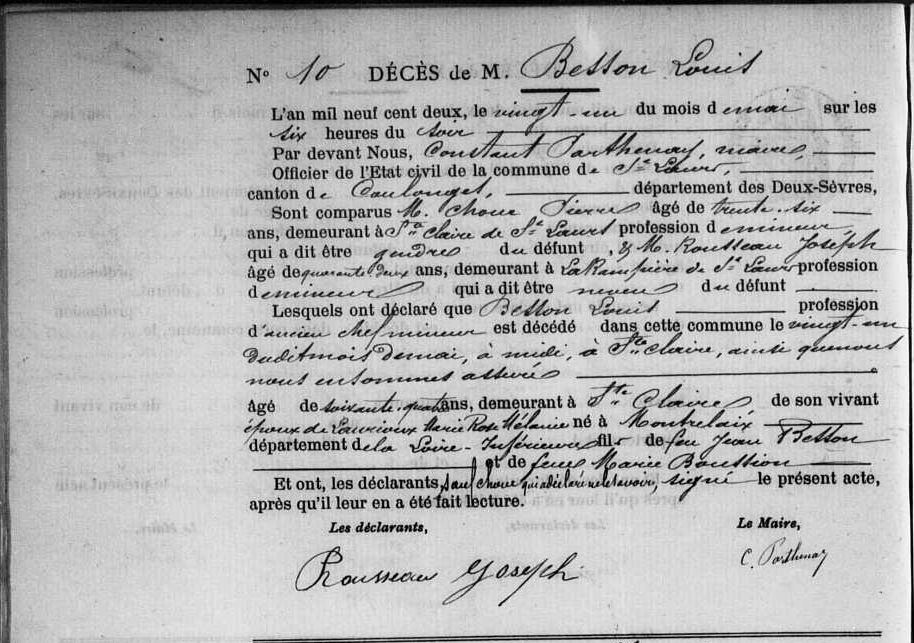 N° 10 DÉCÈS de M. Besson Louis
L'an mil neuf cent deux, le vingt-un du mois de mai sur les
six heures du soir
Par devant Nous, Constant Parthenay, maire,
Officier de l'Etat civil de la commune de St Laurs,
canton de Coulonges, département des Deux-Sèvres,
Sont comparus M. Choue Pierre âgé de trente-six
ans, demeurant à Ste Claire de St Laurs profession de mineur,
qui a dit être gendre du défunt, & M. Rousseau Joseph
âgé de quarante deux ans, demeurant à La Rampière de St Laurs profession
de mineur qui a dit être neveu du défunt
Lesquels ont déclaré que Besson Louis profession
d'ancien chef mineur est décédé dans cette commune le vingt-un
dudit mois de mai, à midi, à Ste Claire, ainsi que nous
nous en sommes assuré
âgé de soixante-quatre ans, demeurant à Ste Claire de son vivant
époux de Laurioux Marie Rose Mélanie né à Montrelaix
département de la Loire-Inférieure fils de feu Jean Besson
et de feue Marie Boussion
Et ont, les déclarants, sauf Choue qui a déclaré ne le savoir, signé le présent acte,
après qu'il leur en a été fait lecture.
Les déclarants, Le Maire,
Rousseau Joseph C. Parthenay